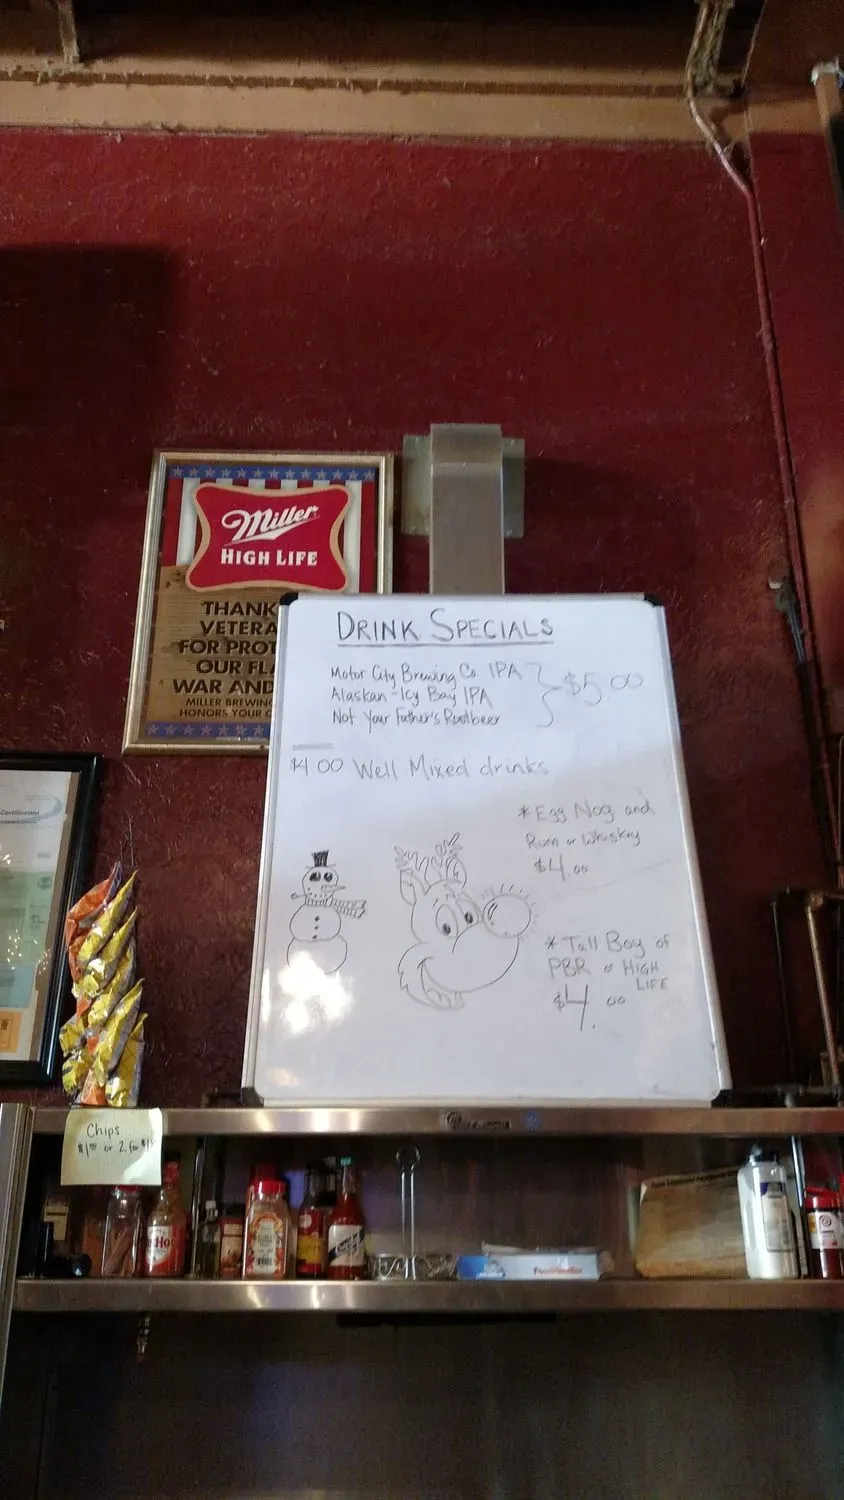 Miller
HIGH LIFE
THANK
VETERA
FOR PROT
OUR FLA
WAR AND
MILLER BREWING
HONORS YOUR C
DRINK SPECIALS
Motor City Brewing Co. IPA
Alaskan - Icy Bay IPA
Not Your Father's Rootbeer
$5.00
$4.00 Well Mixed drinks
* Egg Nog and
Rum or Whiskey
$4.00
* Tall Boy of
PBR or HIGH
LIFE
$4.00
Certification
Chips
$1.00 or 2 for $1